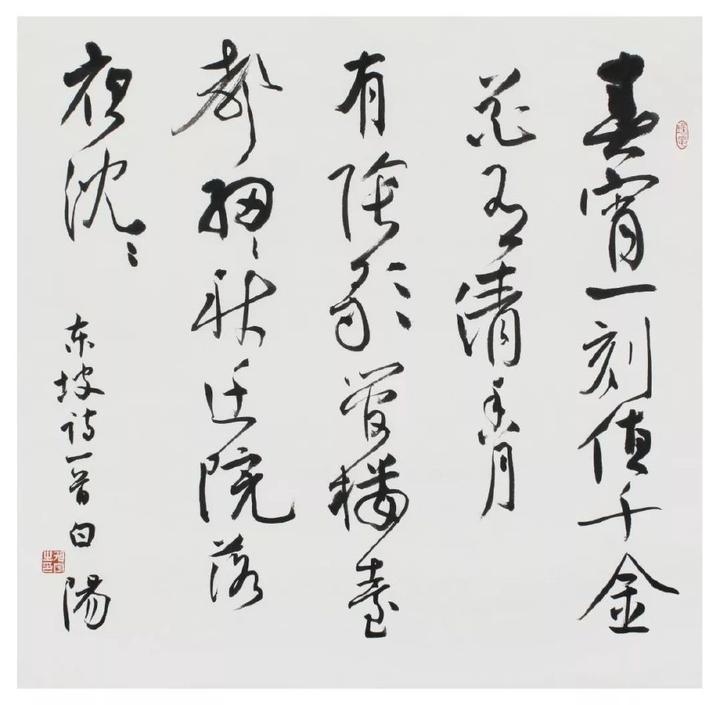 春宵一刻值千金
花有清香月
有陰歌管樓臺
聲細〻秋迁院落
夜沈〻
东坡诗一首白陽